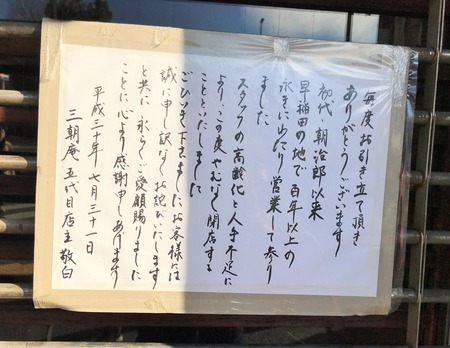 毎度お引き立て頂き
ありがとうございます
初代 朝治郎以来
早稲田の地で 百年以上の
永きにわたり営業して参り
ました
スタッフの高齢化と人手不足に
より、この度やむなく閉店する
ことといたしました
ごひいきて下さいましたお客様には
誠に申し訳なくお詫びいたします
と共に 永らくご愛顧賜りました
ことに心より感謝申しあげます
平成三十年 七月三十一日
三朝庵 五代目店主 敬白